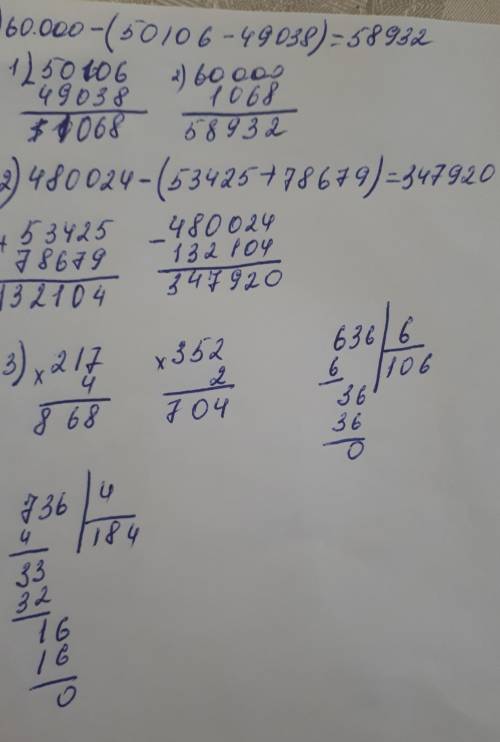 )60.000-(50106-49038)=58932
1) -50106
49038
1068
2) 60000
1068
58932
2) 480024-(53425+78679)=347920
+53425
78679
132104
-480024
132104
347920
3) x217
4
868
x352
2
704
636 | 6
6 106
36
36
0
736 | 4
4 184
33
32
16
16
0